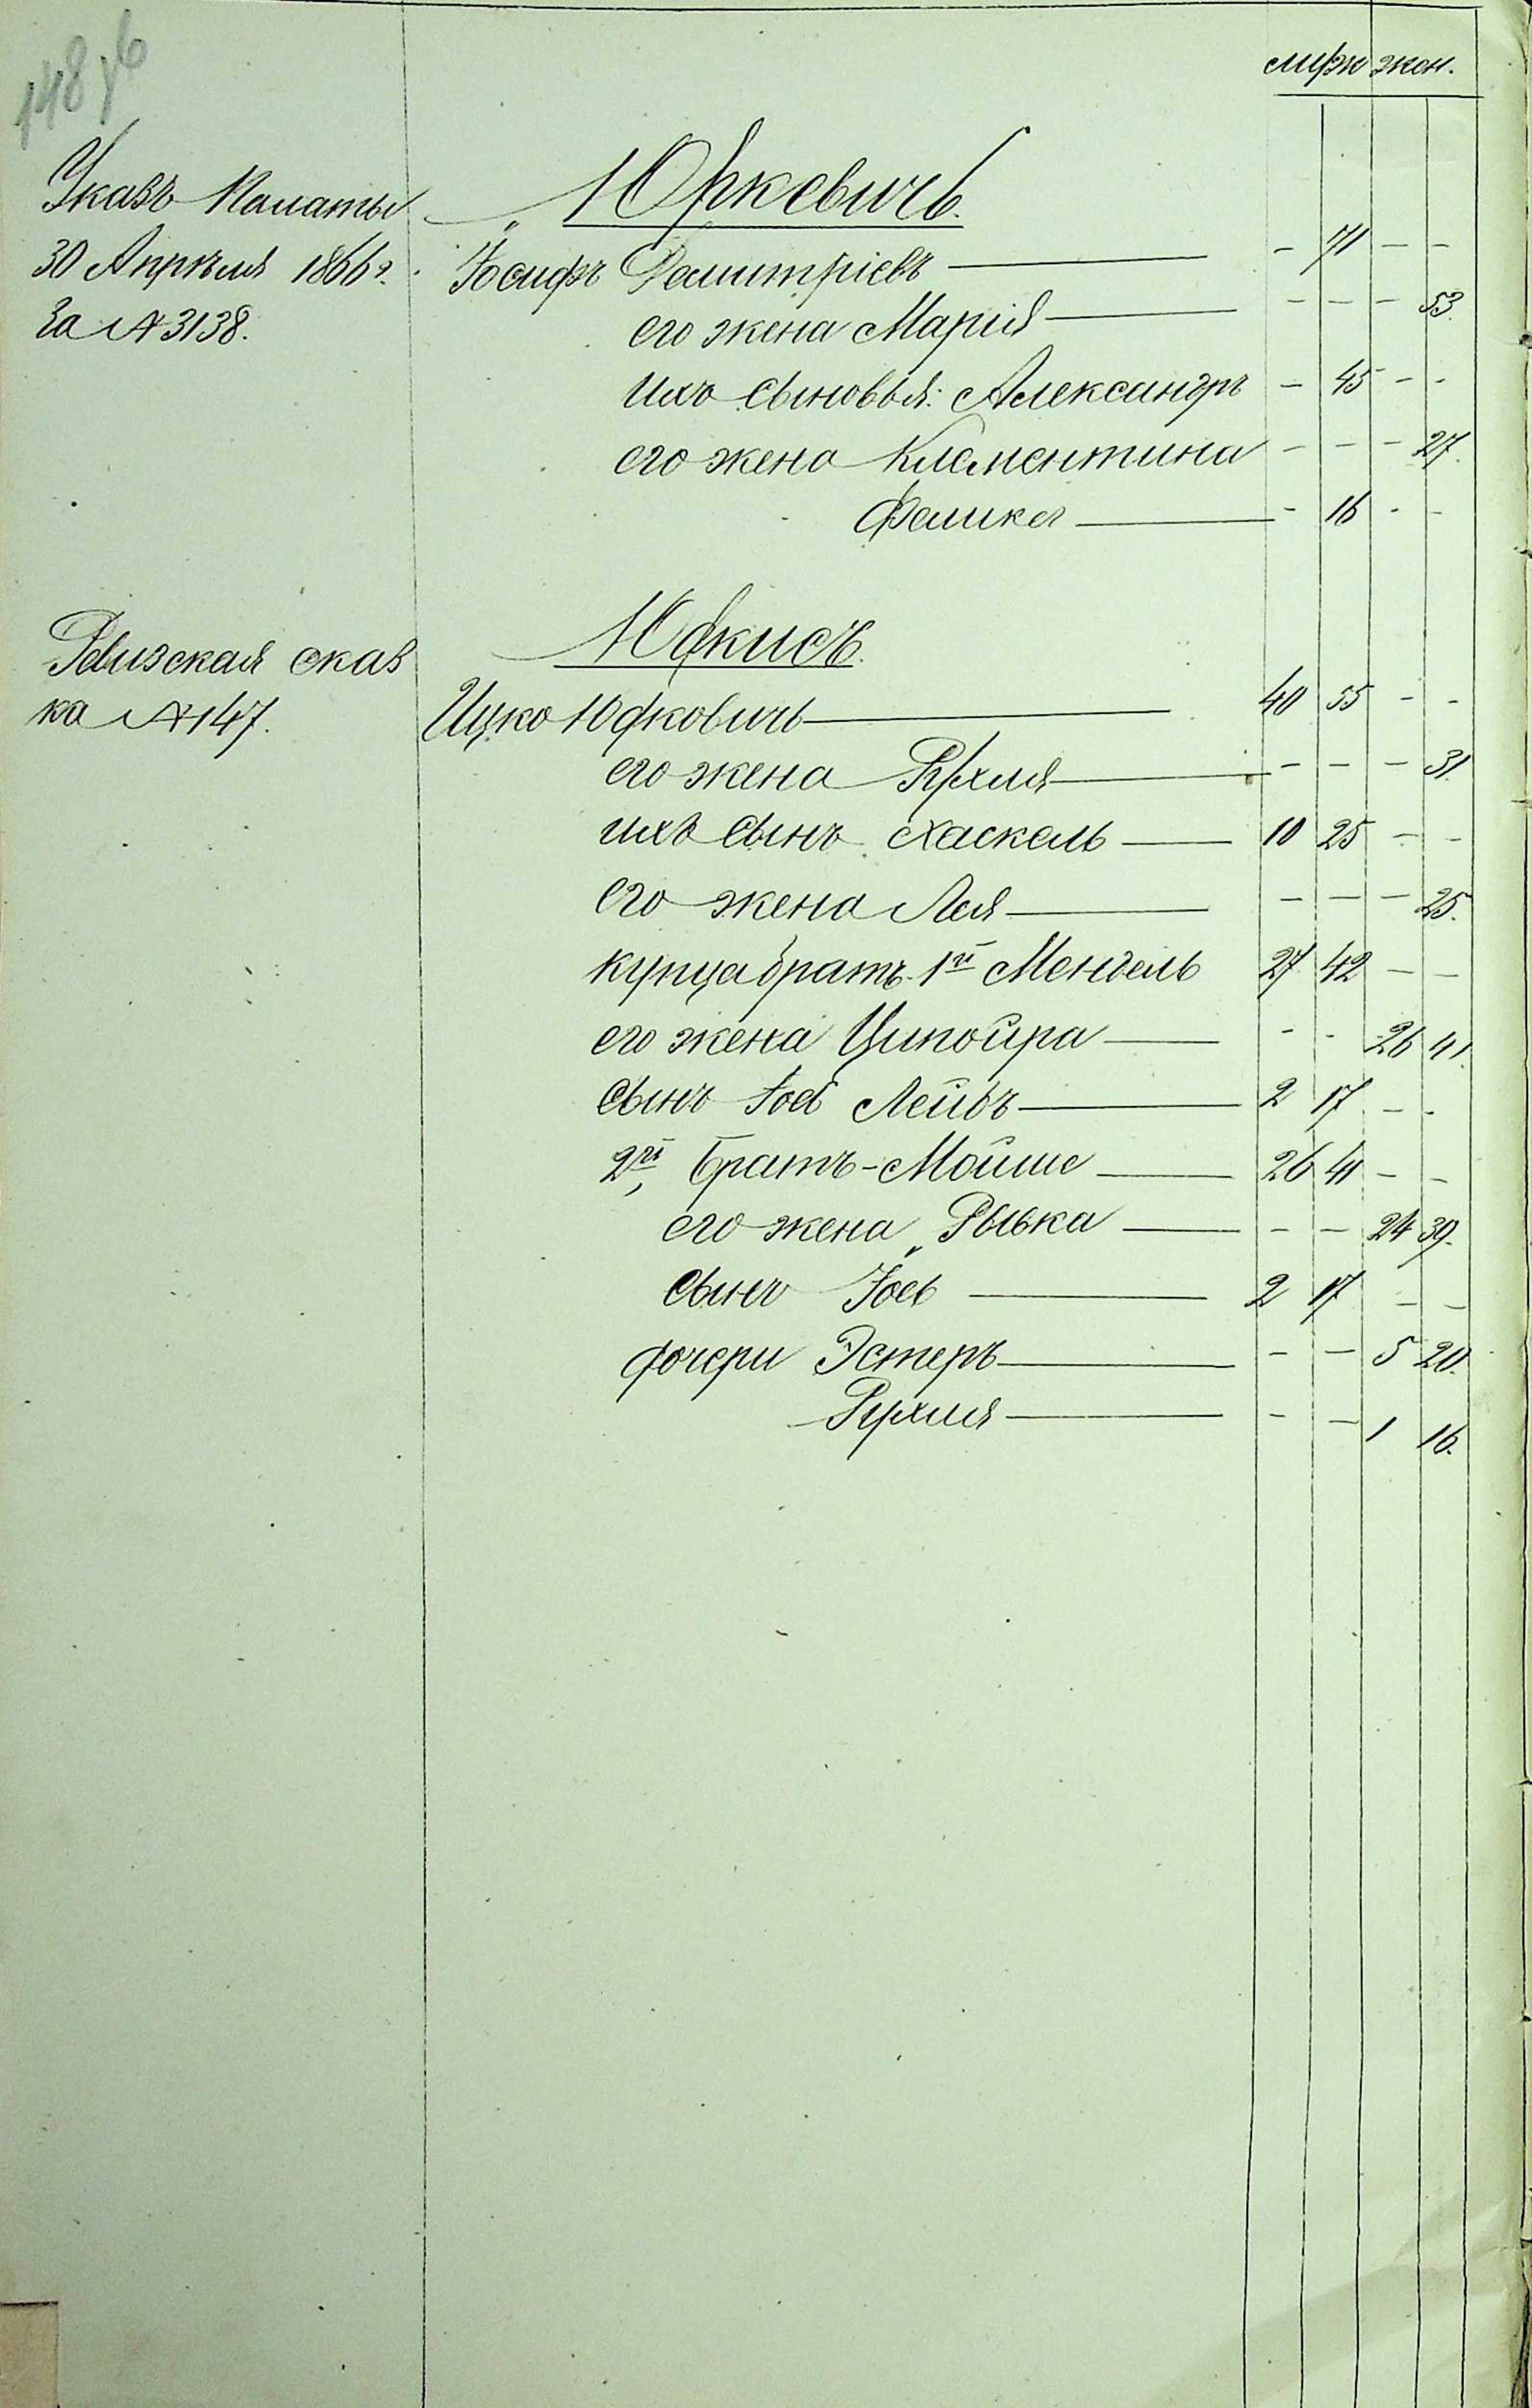 148 у б
муж жен.
Указъ Палаты
30 Апрѣля 1866 г.
За № 3138.
Юркевичъ.
Іосифъ Дамитріевъ — - 71 - -
его жена Марія — - - - 53.
ихъ сыновья: Александръ - 45 - -
его жена Клементина - - - 27.
Феликсъ — - 16 - -
Ревизская сказ
ка № 147.
Юфкисъ.
Ицко Юфковичъ — 40 55 - -
его жена Рухля — - - - 31.
ихъ сынъ Хаскель — 10 25 - -
его жена Лея — - - - 25.
купца братъ 1й Мендель 27 42 - -
его жена Ципойра — - - 26 41.
сынъ Іосъ Лейбъ — 2 17 - -
2й, братъ-Мойше — 26 41 - -
его жена Рывка — - - 24 39.
сынъ Іосъ — 2 17 - -
дочери Эстеръ — - - 5 20.
Рухля — - - 1 16.